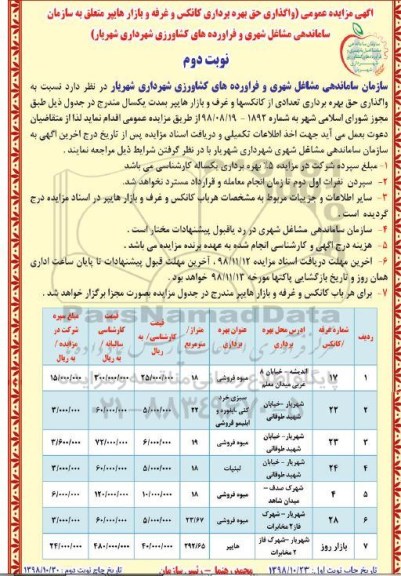 آگهی مزایده عمومی (واگذاری حق بهره برداری کانکس و غرفه و بازار هایپر متعلق به سازمان
ساماندهی مشاغل شهری و فراورده های کشاورزی شهرداری شهریار)
نوبت دوم
سازمان ساماندهی مشاغل شهری و فراورده های کشاورزی شهرداری شهریار در نظر دارد نسبت به
واگذاری حق بهره برداری تعدادی از کانکسها و غرف و بازار هایپر بمدت یکسال مندرج در جدول ذیل طبق
مجوز شورای اسلامی شهر به شماره ۱۸۹۲ - ۹۸/۰۸/۱۹ از طریق مزایده عمومی اقدام نماید لذا از متقاضیان
دعوت بعمل می آید جهت اخذ اطلاعات تکمیلی و دریافت اسناد مزایده پس از تاریخ درج آخرین آگهی به
سازمان ساماندهی مشاغل شهری شهرداری شهریار با در نظر گرفتن شرایط ذیل مراجعه نمایند .
۱- مبلغ سپرده شرکت در مزایده ۵٪ بهره برداری یکساله کارشناسی می باشد.
۲- سپردن نفرات اول دوم تا زمان انجام معامله و قرارداد مسترد نخواهد شد.
۳- سایر اطلاعات و جزییات مربوط به مشخصات هرباب کانکس و غرف و بازار هایپر در اسناد مزایده درج
گردیده است .
۴- سازمان ساماندهی مشاغل شهری در رد یاقبول پیشنهادات مختار است .
۵- هزینه درج آگهی و کارشناسی انجام شده به عهده برنده مزایده می باشد .
۶- آخرین مهلت دریافت اسناد مزایده ۹۸/۱۱/۱۲ ، آخرین مهلت قبول پیشنهادات تا پایان ساعت اداری
همان روز و تاریخ بازگشایی پاکتها مورخه ۹۸/۱۱/۱۳ خواهد بود .
۷- برای هر باب کانکس و غرفه و بازار هایپر مندرج در جدول مزایده بصورت مجزا برگزار خواهد شد .
ردیف شماره غرفه /کانکس آدرس محل بهره برداری عنوان بهره برداری متراژ / مترمربع قیمت کارشناسی / به ریال قیمت کارشناسی سالیانه / به ریال مبلغ سپره شرکت در مزایده / به ریال
۱ ۱۷ اندیشه - خیابان ۸ غربی میدان معلم میوه فروشی ۱۸ ۲۵/۰۰۰/۰۰۰ ۳۰۰/۰۰۰/۰۰۰ ۱۵/۰۰۰/۰۰۰
۲ ۲۲ شهریار -خیابان شهید طوقانی سبزی خرد کنی ،آبغوره و آبلیمو فروشی ۲۲ ۵/۰۰۰/۰۰۰ ۶۰/۰۰۰/۰۰۰ ۳/۰۰۰/۰۰۰
۳ ۲۳ شهریار- خیابان شهید طوقانی میوه فروشی ۱۹ ۶/۰۰۰/۰۰۰ ۷۲/۰۰۰/۰۰۰ ۳/۶۰۰/۰۰۰
۴ ۲۴ شهریار - خیابان شهید طوقانی لبنیات ۱۸ ۵/۰۰۰/۰۰۰ ۶۰/۰۰۰/۰۰۰ ۳/۰۰۰/۰۰۰
۵ ۴ شهرک صدف – میدان شاهد میوه فروشی ۱۸ ۱۰/۰۰۰/۰۰۰ ۱۲۰/۰۰۰/۰۰۰ ۶/۰۰۰/۰۰۰
۶ ۲۸ شهریار –شهرک فاز۲ مخابرات میوه فروشی ۲۳/۶۷ ۵/۰۰۰/۰۰۰ ۶۰/۰۰۰/۰۰۰ ۳/۰۰۰/۰۰۰
۷ بازار روز شهریار –شهرک فاز ۲ مخابرات هایپر ۳۹۲/۶۵ ۴۰/۰۰۰/۰۰۰ ۴۸۰/۰۰۰/۰۰۰ ۲۴/۰۰۰/۰۰۰
تاریخ چاپ نوبت اول: ۱۳۹۸/۱۰/۲۳ محمد رهنما – رئیس سازمان تاریخ چاپ نوبت دوم: ۱۳۹۸/۱۰/۳۰